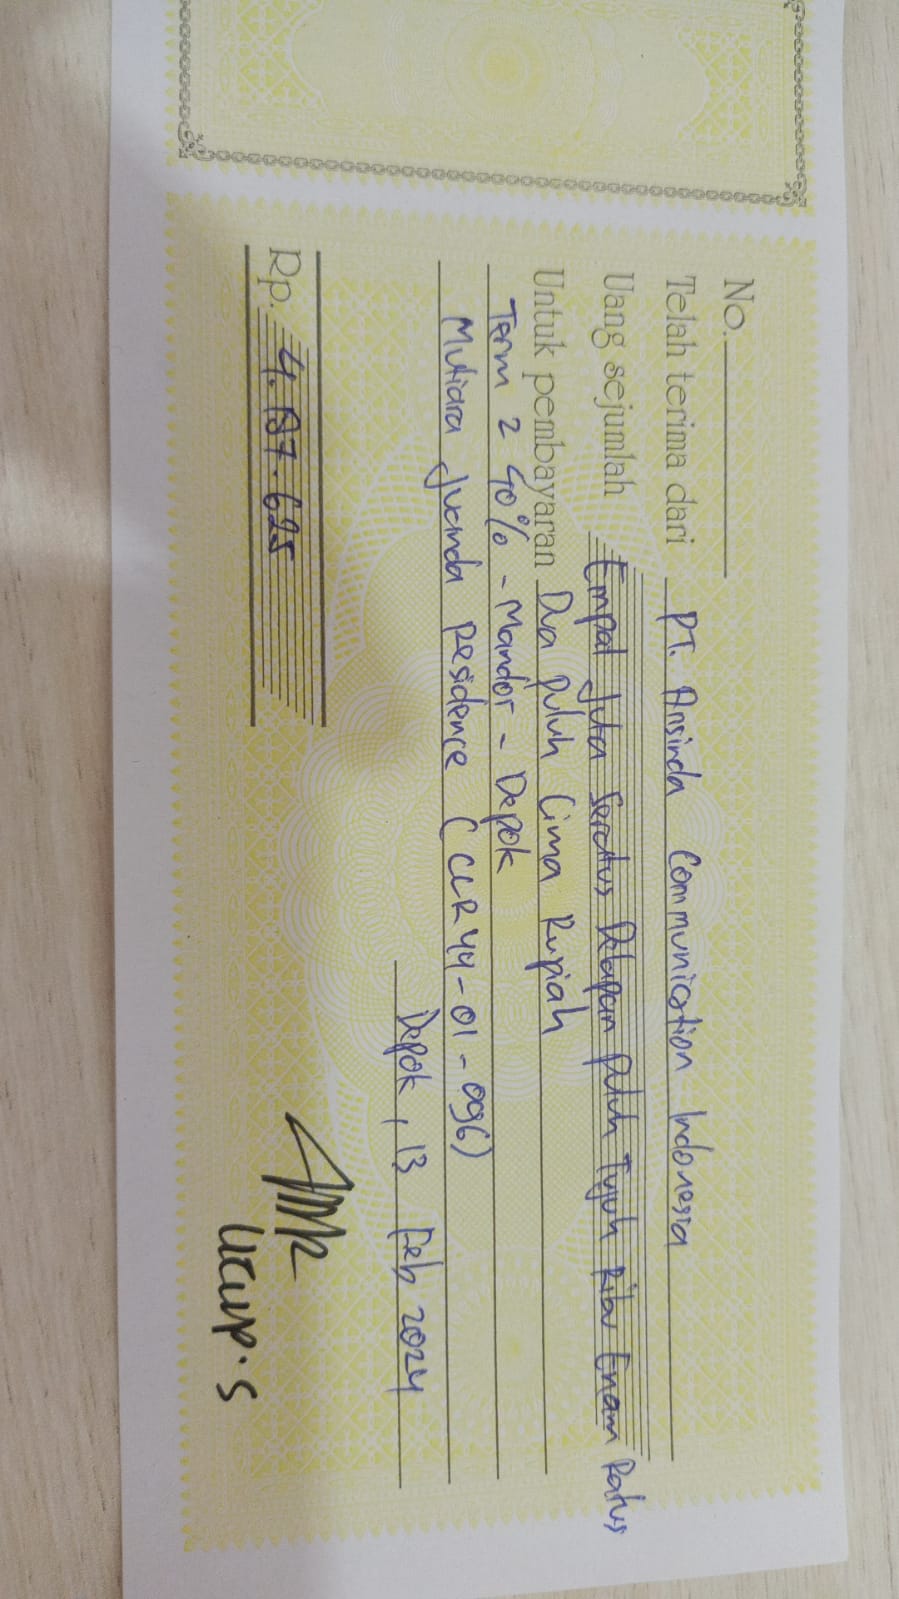 No.
Telah terima dari PT. Ansinda Communication Indonesia
Uang sejumlah Empat Juta Seratus Delapan puluh Tujuh Ribu Enam Ratus
Untuk pembayaran Dua puluh Lima Rupiah
Term 2 40% - Mandor - Depok
Mutiara Juanda Residence (CLR44-01-096)
Depok, 13 Feb 2024
Rp. 4.187.625
Ucup.S